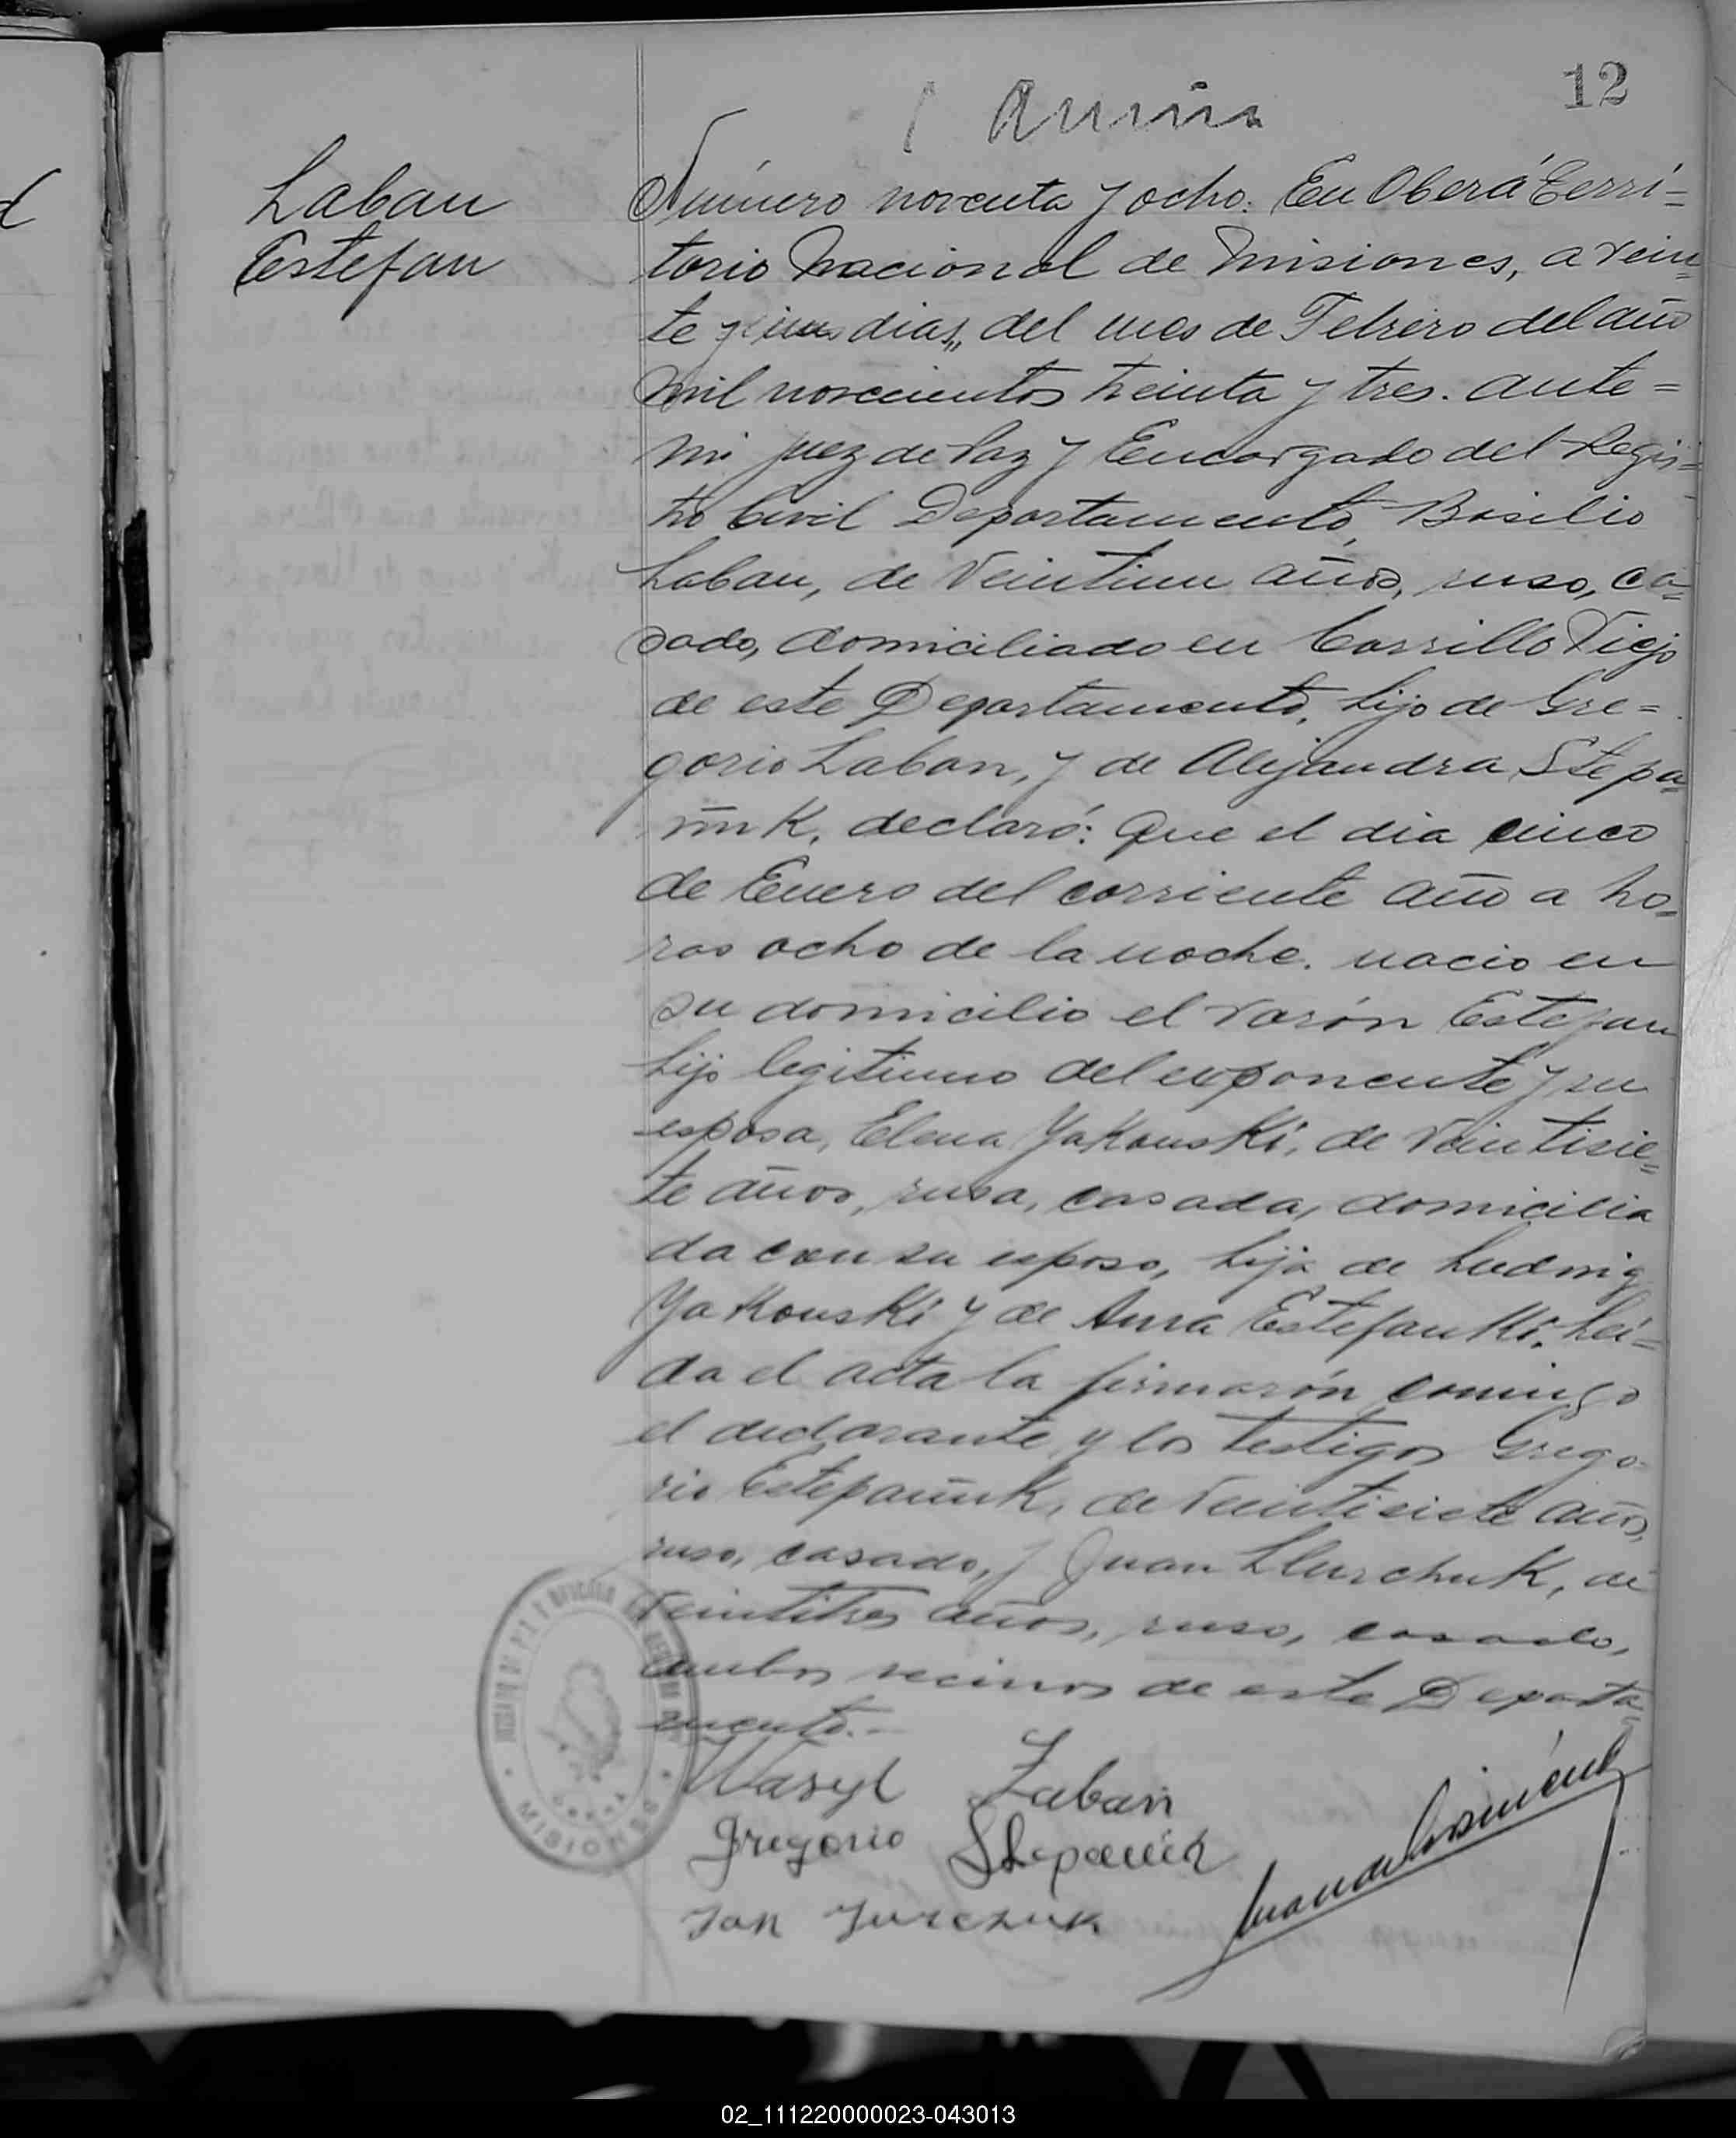 12
Laban
Estefan
Número noventa y ocho. En Oberá Terri=
torio Nacional de Misiones, a vein=
te y un dias, del mes de Febrero del año
mil novecientos treinta y tres. ante=
mi juez de Paz y Encargado del Regis=
tro Civil Departamento, Basilio
Laban, de veintiun años, ruso, ca=
sado, domiciliado en Cerrillo Viejo
de este Departamento, hijo de Gre=
gorio Laban, y de Alejandra Stepa=
ñuk, declaró: Que el dia cinco
de Enero del corriente año a ho=
ras ocho de la noche. nacio en
su domicilio el varón Estefan
hijo legitimo del exponente y su
esposa, Elena Yakouski, de veintisie=
te años, rusa, casada, domicilia
da con su esposo, hija de Ludwig
Yakouski y de Anna Estefanki. Lei=
da el acta la firmarón conmigo
el declarante y los testigos Grego=
rio Estepañuk, de veintisiete años,
ruso, casado, y Juan Llurchuk, de
veintitres años, ruso, casado,
ambos vecinos de este Departa=
mento.-
Wasyl Laban
Gregorio Stepaniuk
Jan Jurczuk
MISIONES
02_111220000023-043013